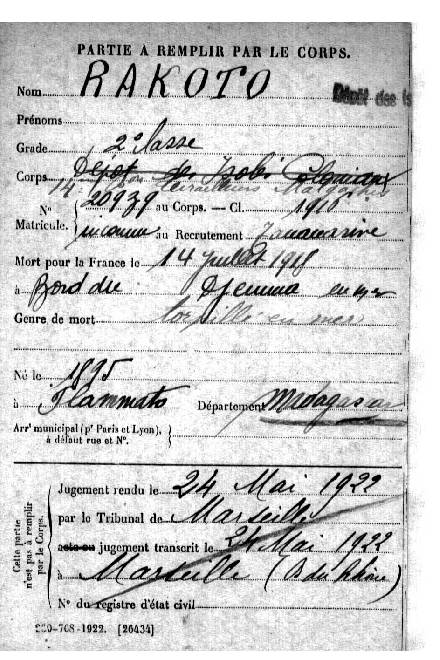 PARTIE A REMPLIR PAR LE CORPS.
Nom RAKOTO
Dépôt des Is
Prénoms
Grade 2e classe
Corps Dépôt de Isolés
Tirailleurs Malgaches
N° 20939 au Corps. — Cl. 1916
Matricule. inconnu au Recrutement Tananarive
Mort pour la France le 14 juillet 1918
à Bord du Djemma en mer
Genre de mort torpillé en mer
Né le 1895
à Département Madagascar
Arrt municipal (pr Paris et Lyon),
à défaut rue et N°.
Cette partie
n'est pas à remplir
par le Corps.
Jugement rendu le 24 Mai 1922
par le Tribunal de Marseille
acte ou jugement transcrit le 24 Mai 1922
à Marseille (B. du Rhône)
N° du registre d'état civil
[26434]